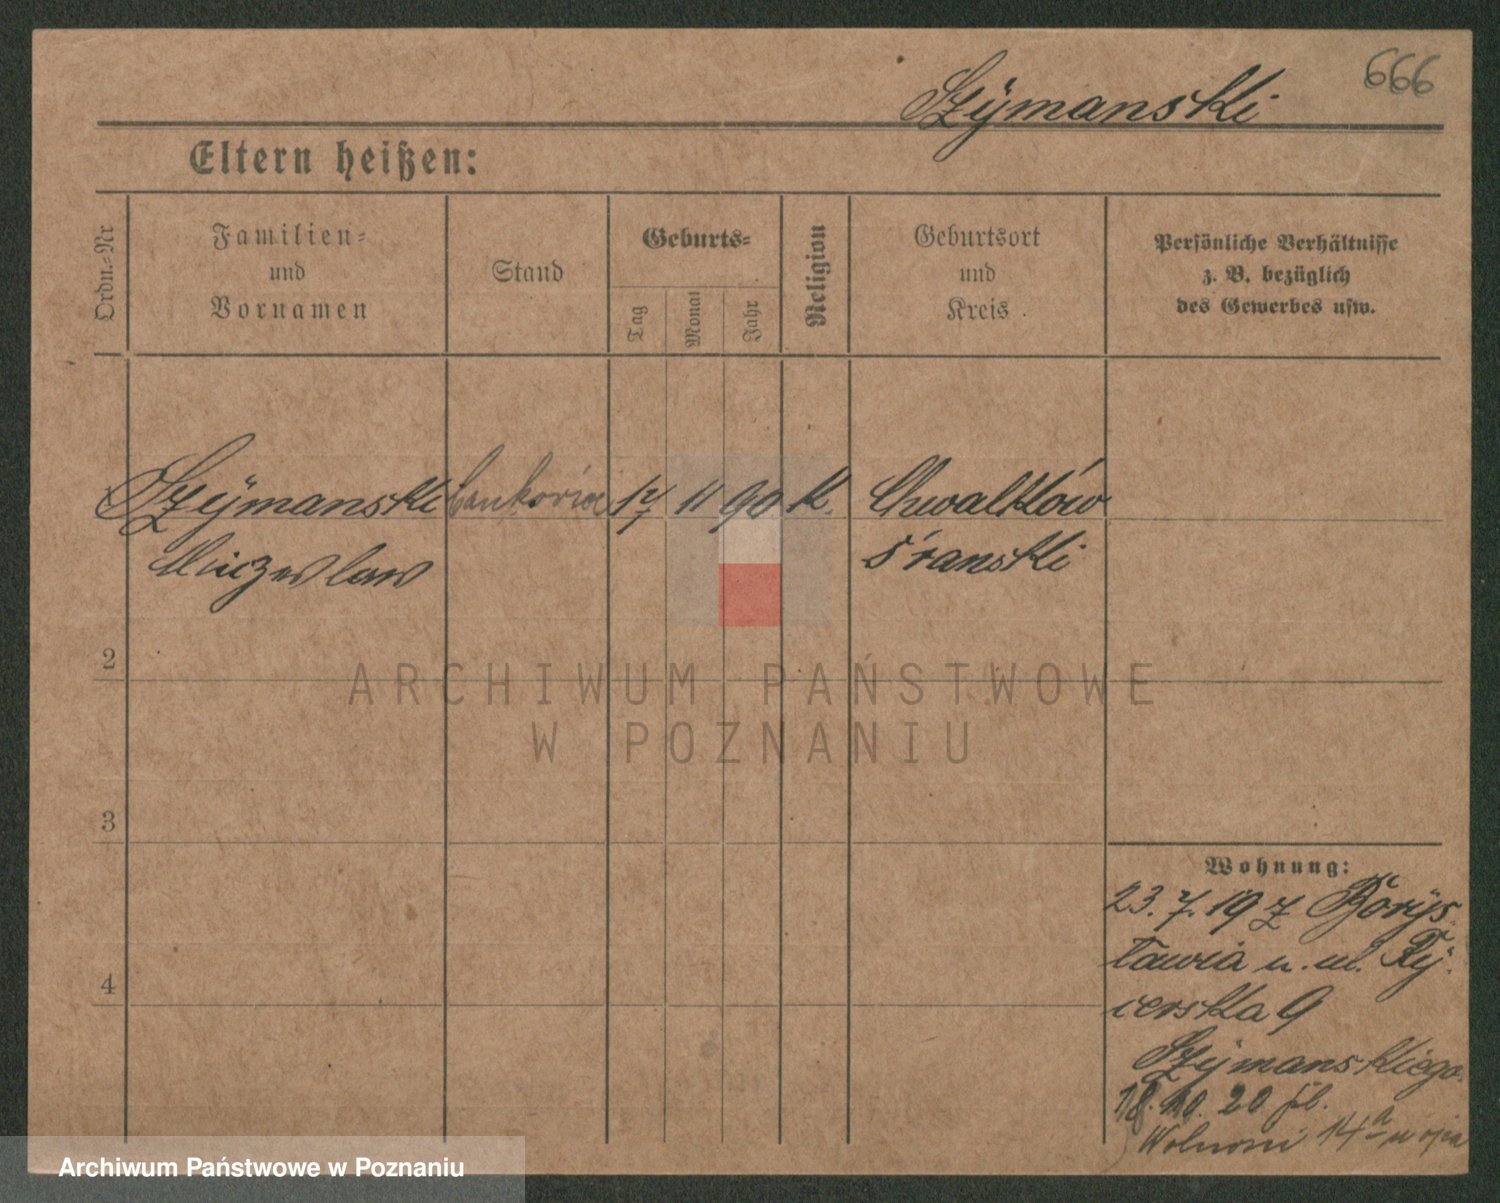 666
Szÿmanski
Eltern heißen:
Ordn.-Nr
Familien-
und
Vornamen
Stand
Geburts-
Tag
Monat
Jahr
Religion
Geburtsort
und
Kreis
Persönliche Verhältnisse
z. B. bezüglich
des Gewerbes usw.
Szÿmanski 17 11 90 K. Chwałków
Mieczeslaw śremski
2
3
4
Wohnung:
23. 7. 19 z Borÿs
ławia u. ul. Rÿ-
cerska 9
Szÿmanskiego.
18. 10. 20
14a u ojca
ARCHIWUM PAŃSTWOWE
W POZNANIU
Archiwum Państwowe w Poznaniu